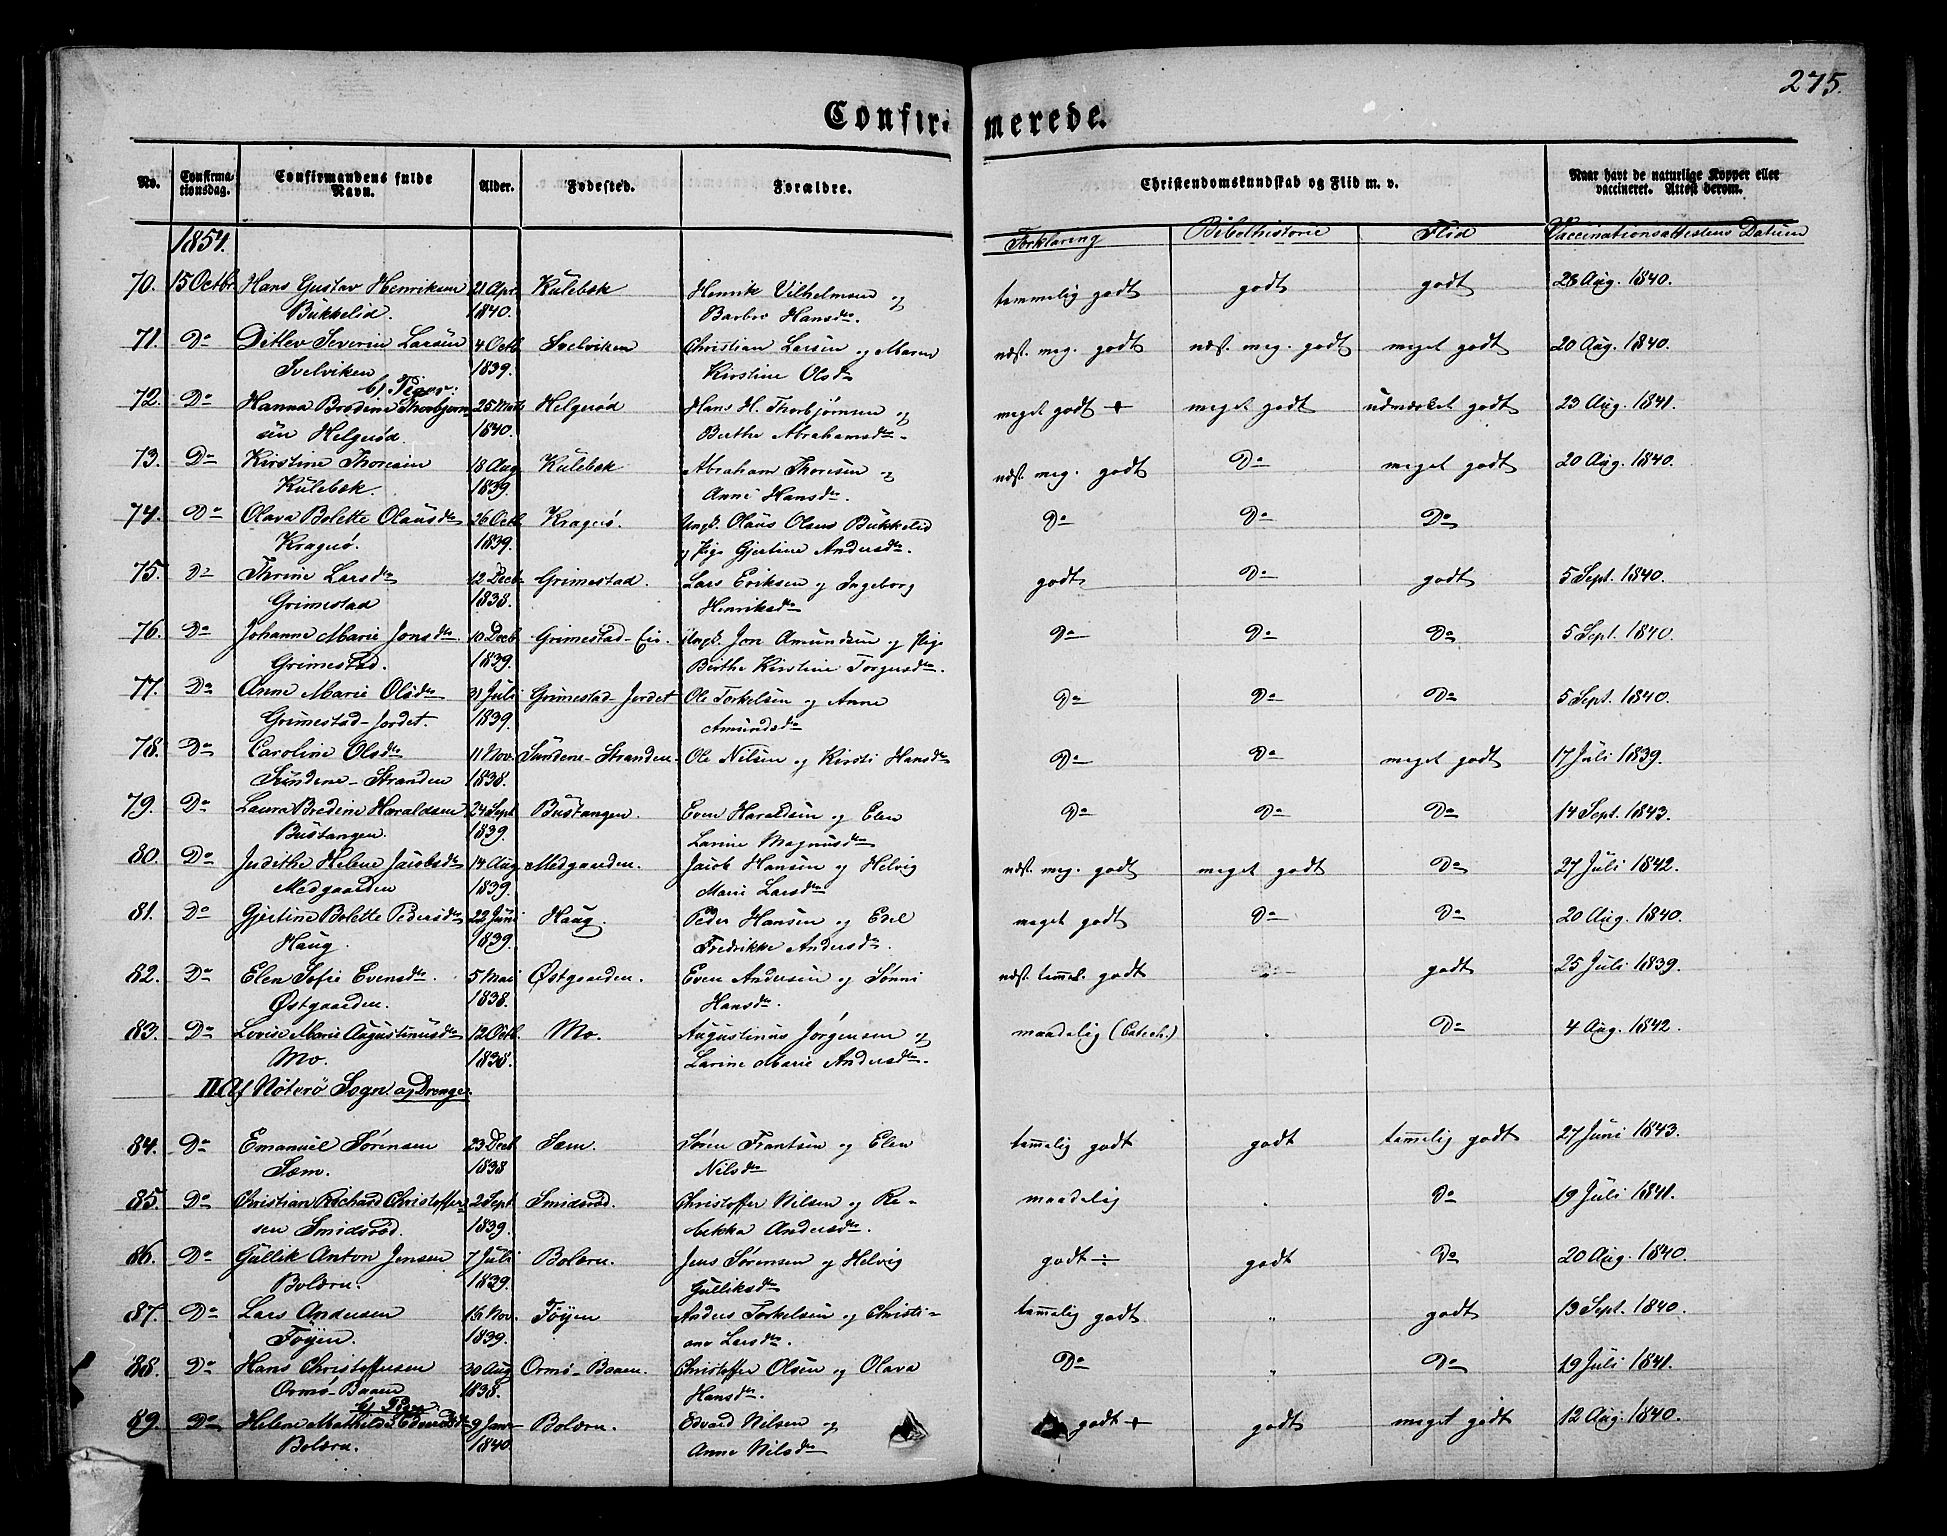 275.
Confirmerede.
No. | Confirma-tionsdag. | Confirmandens fulde Navn. | Alder. | Fødested. | Forældre. | Christendomskundskab og Flid m. v. | Naar havt de naturlige Kopper eller vaccineret. Attest derom.
1854. | Forklaring | Bibelhistorie | Flid | Vaccinationsattestens Datum
70. 15 Octbr Hans Gustav Henriksen 21 Apr. Kulebæk Henrik Vilhelmsen og tammelig godt godt godt 26 Aug. 1840.
Bukkelid. 1840. Barbro Hansdr.
71. Do Ditlev Severin Larsen 4 Octb. Svelviken Christian Larsen og Maren næst. meg. godt næst. meg. godt meget godt 20 Aug. 1840.
Svelviken 1839. Kirstine Olsdr
b) Piger:
72. Do Hanna Bredine Thorbjørn- 25 Marts Helgerød Hans H. Thorbjørnsen og meget godt + meget godt udmærket godt 23 Aug. 1841.
sen Helgerød. 1840. Berthe Abrahamsdr.
73. Do Kirstine Thoresen 18 Aug Kulebæk Abraham Thoresen og næst. meg. godt Do meget godt 20 Aug. 1840.
Kulebæk. 1839. Anne Hansdr.
74. Do Olava Bolette Olausdr 26 Octb. Kragerø. Ungk. Olaus Olsen Bukkelid Do Do Do
Kragerø. 1839. og Pige Gjertine Andersdr.
75. Do Thrine Larsdr 12 Decb. Grimestad. Lars Eriksen og Ingeborg godt Do godt 5 Sept. 1840.
Grimestad 1838. Henriksdr
76. Do Johanne Marie Jonsdr. 10 Decb. Grimestad-Eie. Ungk. Jon Amundsen og Pige Do Do Do 5 Sept. 1840.
Grimestad. 1839. Berthe Kirstine Torgersdr.
77. Do Anne Marie Olsdr 31 Juli Grimestad-Jordet Ole Torkelsen og Anne Do Do Do 5 Sept. 1840.
Grimestad-Jordet. 1839. Amundsdr
78. Do Caroline Olsdr 11 Nov. Sundene-Stranden. Ole Nilsen og Kirsti Hansdr Do Do meget godt 17 Juli 1839.
Sundene-Stranden 1838.
79. Do Laura Bredine Haraldsen 24 Sept. Bustangen. Even Haraldsen og Elen Do Do Do 14 Sept. 1843.
Bustangen. 1839. Larine Magnusdr
80. Do Judithe Helene Jacobsdr 14 Aug Medgaarden. Jacob Hansen og Helvig næst. meg. godt meget godt Do 27 Juli 1842.
Medgaarden 1839. Marie Larsdr
81. Do Gjertine Bolette Pedersdr 22 Juni Haug. Peder Hansen og Edel meget godt Do Do 20 Aug. 1840.
Haug. 1839. Fredrikke Andersdr.
82. Do Elen Sofie Evensdr. 5 Mai Østgaarden. Even Andersen og Sønni næst. tamel. godt godt 25 Juli 1839.
Østgaarden. 1838. Hansdr.
83. Do Lovise Marie Augustinusdr 12 Octb. Mo. Augustinus Jørgensen og maadelig (Catech.) Do 4 Aug. 1842.
Mo. 1838. Larine Marie Andersdr.
II Af Nøterø Sogn. a) Drenge.
84. Do Emanuel Sørensen 23 Decb. Sæm. Søren Frantsen og Elen tamelig godt godt tamelig godt 27 Juni 1843.
Sæm. 1838 Nilsdr
85. Do Christian Richard Christoffer- 2 Sept Smidsrød. Christoffer Nilsen og Re- maadelig Do 19 Juli 1841.
sen Smidsrød. 1839. bekka Andersdr.
86. Do Gullik Anton Jensen 7 Juli Bolærn. Jens Sørensen og Helvig godt ÷ godt Do 20 Aug. 1840.
Bolærn. 1839. Gulliksdr
87. Do Lars Andersen 16 Nov. Føyen Anders Torkelsen og Christi- tamelig godt " godt 13 Sept. 1840.
Føyen. 1839. ane Larsdr.
88. Do Hans Christoffersen 30 Aug Ormø-Baaen. Christoffer Olsen og Olava Do " Do 19 Juli 1841.
Ormø-Baaen 1838. Hansdr.
b) Piger.
89. Do Helene Mathilde Edvardsdr 9 Janr Bolærn. Edvard Nilsen og godt + godt meget godt 12 Aug. 1840.
Bolærn. 1840. Anne Nilsdr